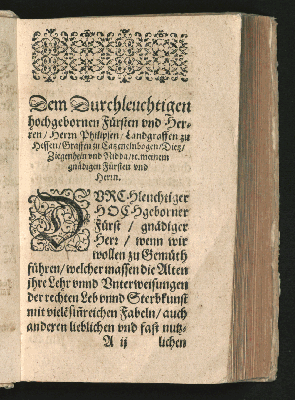 Dem Durchleuchtigen
hochgebornen Fürsten vnd Her-
ren/ Herrn Philipsen/ Landgraffen zu
Hessen/ Graffen zu Catzenelnbogen/ Dietz/
Ziegenhein vnd Nidda/ ꝛc. meinem
gnädigen Fürsten vnd
Herrn.
DVRCHleuchtiger
HOCHgeborner
Fürst / gnädiger
Herr / wenn wir
wollen zu Gemüth
führen/ welcher massen die Alten
jhre Lehr vnnd Vnterweisungen
der rechten Leb vnnd Sterbkunst
mit vielē siñreichen Fabeln/ auch
anderen lieblichen vnd fast nutz-
A ij lichen